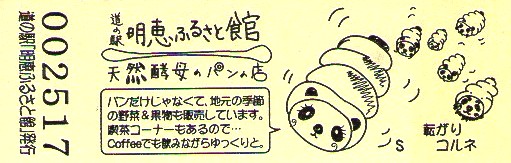 002517
道の駅「明恵ふるさと館」発行
道の駅 明恵ふるさと館
天然酵母のパンの店
パンだけじゃなくて、地元の季節
の野菜&果物も販売しています。
喫茶コーナーもあるので…
Coffeeでも飲みながらゆっくりと。
S
転がり
コルネ